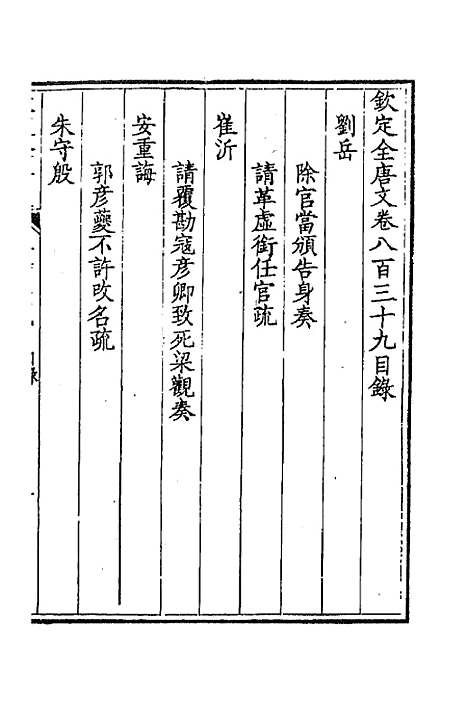 欽定全唐文卷八百三十九目錄
劉岳
除官當頒告身奏
請革虛銜任官疏
崔沂
請覆勘寇彥卿致死梁觀奏
安重誨
郭彥夔不許改名疏
朱守殷